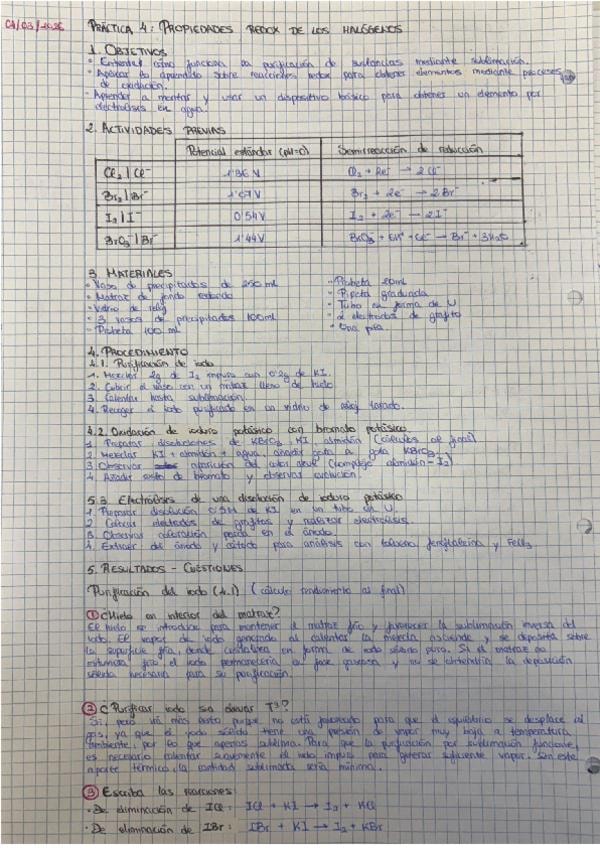 04/03/2026
PRÁCTICA 4: PROPIEDADES REDOX DE LOS HALÓGENOS
1. OBJETIVOS
- Entender cómo funciona la purificación de sustancias mediante sublimación.
- Aplicar lo aprendido sobre reacciones redox para obtener elementos mediante procesos
de oxidación.
- Aprender a montar y usar un dispositivo básico para obtener un elemento por
electrólisis en agua.
2. ACTIVIDADES PREVIAS
Potencial estándar (pH=0) Semirreacción de reducción
Cl₂ | Cl⁻ 1'36 V Cl₂ + 2e⁻ → 2Cl⁻
Br₂ | Br⁻ 1'07 V Br₂ + 2e⁻ → 2Br⁻
I₂ | I⁻ 0'54V I₂ + 2e⁻ → 2I⁻
BrO₃⁻ | Br⁻ 1'44V BrO₃⁻ + 6H⁺ + 6e⁻ → Br⁻ + 3H₂O
3. MATERIALES
- Vaso de precipitados de 250 ml
- Matraz de fondo redondo
- Vidrio de reloj
- 3 vasos de precipitados 100ml
- Probeta 100 ml
- Probeta 20ml
- Pipeta graduada
- Tubo en forma de U
- 2 electrodos de grafito
- Una pila
4. PROCEDIMIENTO
4.1. Purificación de iodo
1. Mezclar 2g de I₂ impuro con 0'2g de KI.
2. Cubrir el vaso con un matraz lleno de hielo
3. Calentar hasta sublimación.
4. Recoger el iodo purificado en un vidrio de reloj tarado.
4.2. Oxidación de ioduro potásico con bromato potásico
1. Preparar disoluciones de KBrO₃, KI, almidón (cálculos al final)
2. Mezclar KI + almidón + agua, añadir gota a gota KBrO₃.
3. Observar aparición del color azul (complejo almidón - I₂)
4. Añadir resto de bromato y observar evolución.
5.3. Electrólisis de una disolución de ioduro potásico
1. Preparar disolución 0'5M de KI en un tubo en U.
2. Colocar electrodos de grafitos y realizar electrólisis.
3. Observar coloración parda en el ánodo.
4. Extraer del ánodo y cátodo para análisis con tolueno, fenolftaleína y FeCl₃
5. RESULTADOS - CUESTIONES
Purificación del iodo (4.1) (cálculo rendimiento al final)
① ¿Hielo en interior del matraz?
El hielo se introduce para mantener el matraz frío y favorecer la sublimación inversa del
iodo. El vapor de iodo generado al calentar la mezcla asciende y se deposita sobre
la superficie fría, donde cristaliza en forma de iodo sólido puro. Si el matraz no
estuviera frío, el iodo permanecería en fase gaseosa y no se obtendría la deposición
sólida necesaria para su purificación.
② ¿Purificar iodo sin elevar Tª?
Sí, pero va más lento porque no está favorecido para que el equilibrio se desplace al
gas, ya que el iodo sólido tiene una presión de vapor muy baja a temperatura
ambiente, por lo que apenas sublima. Para que la purificación por sublimación funcione,
es necesario calentar suavemente el iodo impuro para generar suficiente vapor. Sin este
aporte térmico, la cantidad sublimada sería mínima.
③ Escriba las reacciones:
- De eliminación de ICl: ICl + KI → I₂ + KCl
- De eliminación de IBr: IBr + KI → I₂ + KBr